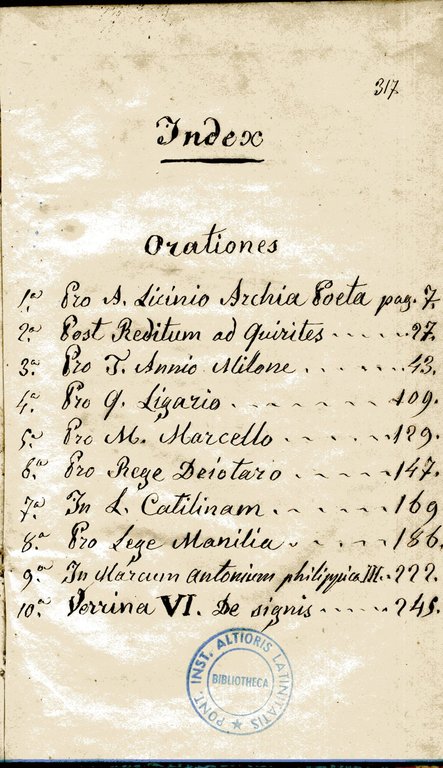 317.
Index
Orationes
1ª. Pro A. Licinio Archia Poeta pag. 7.
2ª. Post Reditum ad Quirites - - - - - 27.
3ª. Pro T. Annio Milone - - - - - - 43.
4ª. Pro Q. Ligario - - - - - - - - 109.
5ª. Pro M. Marcello - - - - - - 129.
6ª. Pro Rege Deiotaro - - - - - - 147.
7ª. In L. Catilinam - - - - - - - 169
8ª. Pro Lege Manilia - - - - - - 186.
9ª. In Marcum Antonium philippica III. - - 222.
10ª. Verrina VI. De signis - - - - - 245.
PONT. INST. ALTIORIS LATINITATIS
BIBLIOTHECA